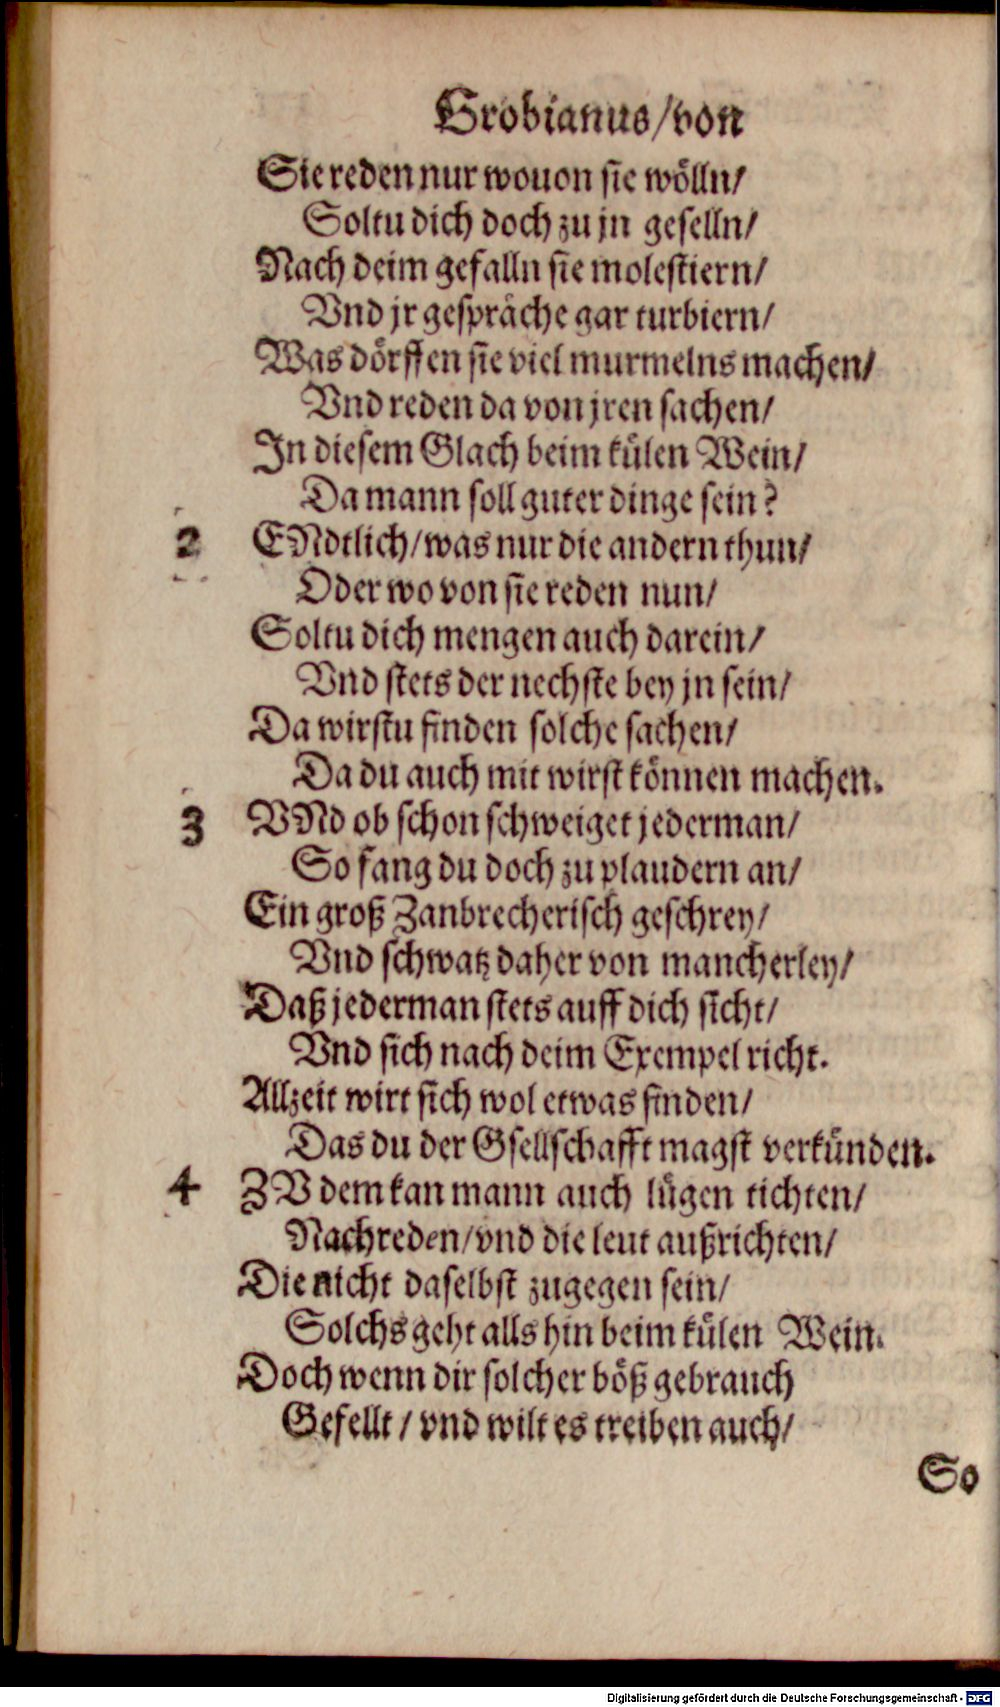 Grobianus/von
Sie reden nur wouon sie wölln/
Soltu dich doch zu jn geselln/
Nach deim gefalln sie molestiern/
Vnd jr gespräche gar turbiern/
Was dörffen sie viel murmelns machen/
Vnd reden da von jren sachen/
In diesem Glach beim külen Wein/
Da mann soll guter dinge sein?
2 ENdtlich/was nur die andern thun/
Oder wo von sie reden nun/
Soltu dich mengen auch darein/
Vnd stets der nechste bey jn sein/
Da wirstu finden solche sachen/
Da du auch mit wirst können machen.
3 VNd ob schon schweiget jederman/
So fang du doch zu plaudern an/
Ein groß Zanbrecherisch geschrey/
Vnd schwatz daher von mancherley/
Daß jederman stets auff dich sicht/
Vnd sich nach deim Exempel richt.
Allzeit wirt sich wol etwas finden/
Das du der Gsellschafft magst verkünden.
4 ZV dem kan mann auch lügen tichten/
Nachreden/vnd die leut außrichten/
Die nicht daselbst zugegen sein/
Solchs geht alls hin beim külen Wein.
Doch wenn dir solcher böß gebrauch
Gefellt/vnd wilt es treiben auch/
So
Digitalisierung gefördert durch die Deutsche Forschungsgemeinschaft - DFG